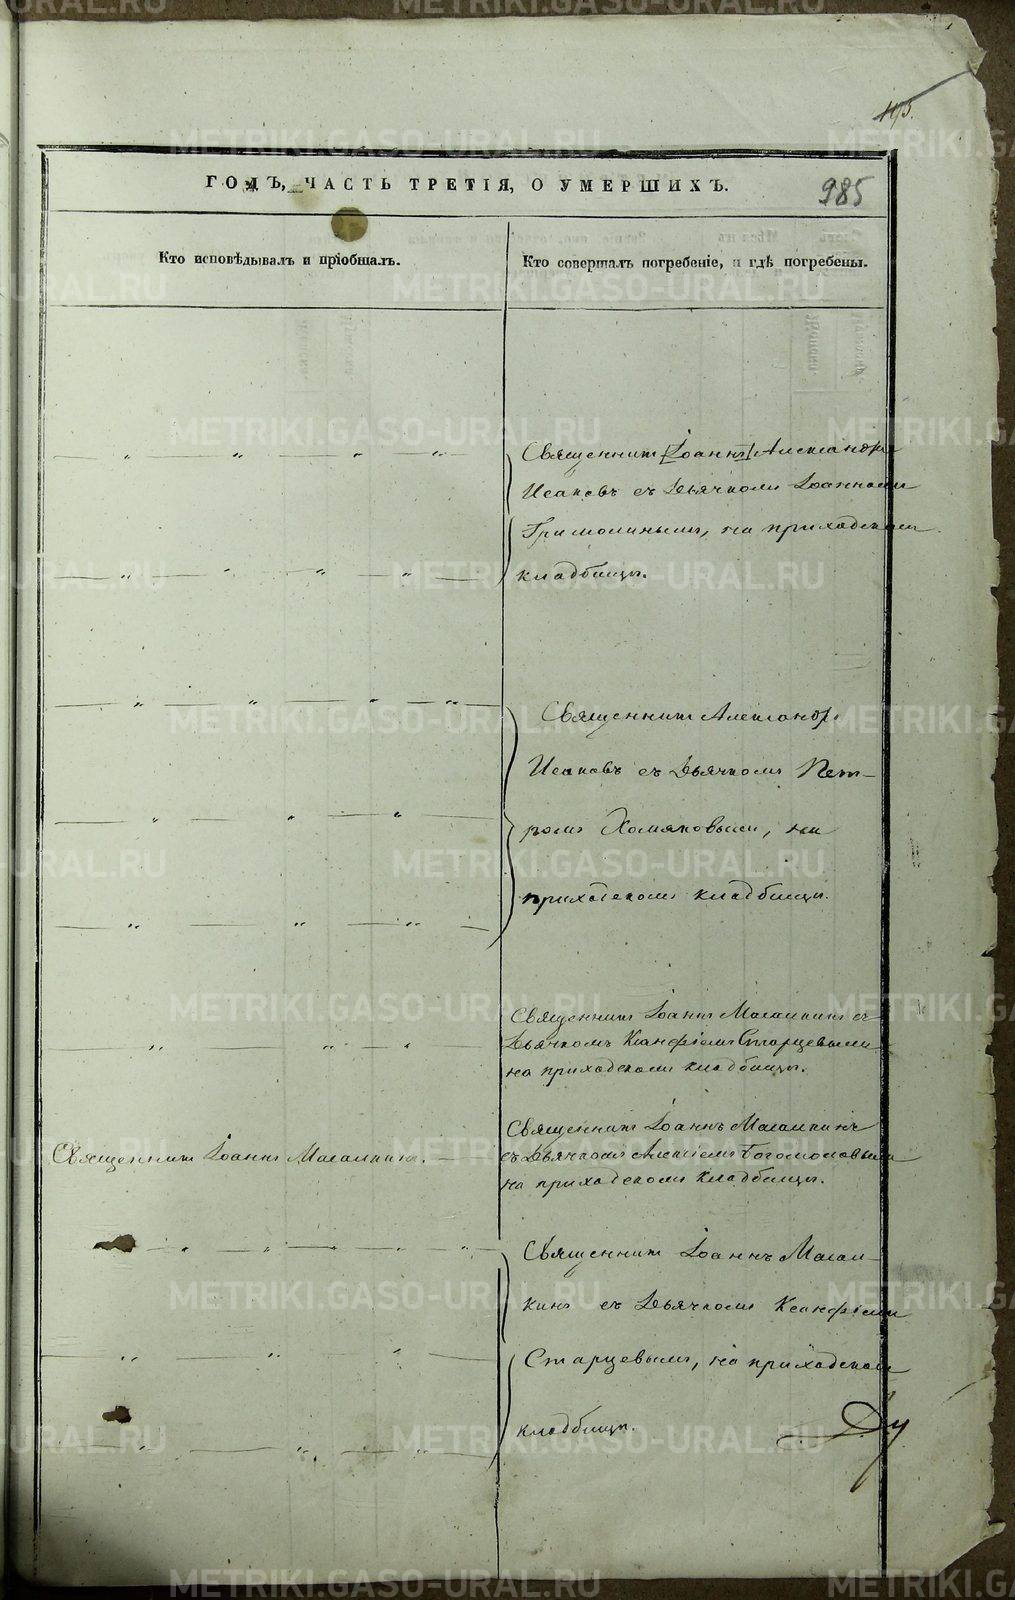 985
ГОДЪ, ЧАСТЬ ТРЕТІЯ, О УМЕРШИХЪ.
Кто исповѣдывалъ и пріобщалъ.
Кто совершалъ погребеніе, и гдѣ погребены.
Священникъ [Іоаннъ] Александръ
Исаковъ съ Дьячкомъ Іоанномъ
на приходскомъ
кладбищѣ.
Священникъ Александръ
Исаковъ съ Дьячкомъ Пет-
ромъ Хомяковымъ, на
приходскомъ кладбищѣ.
Священникъ Іоаннъ Масалкинъ съ
Дьячкомъ Ксанфіемъ Старцевымъ
на приходскомъ кладбищѣ.
Священникъ Іоаннъ Масалкинъ.
Священникъ Іоаннъ Масалкинъ
съ Дьячкомъ Алексіемъ Богомоловымъ
на приходскомъ кладбищѣ.
Священникъ Іоаннъ Масал-
кинъ съ Дьячкомъ Ксанфіемъ
Старцевымъ, на приходскомъ
кладбищѣ.
METRIKI.GASO-URAL.RU